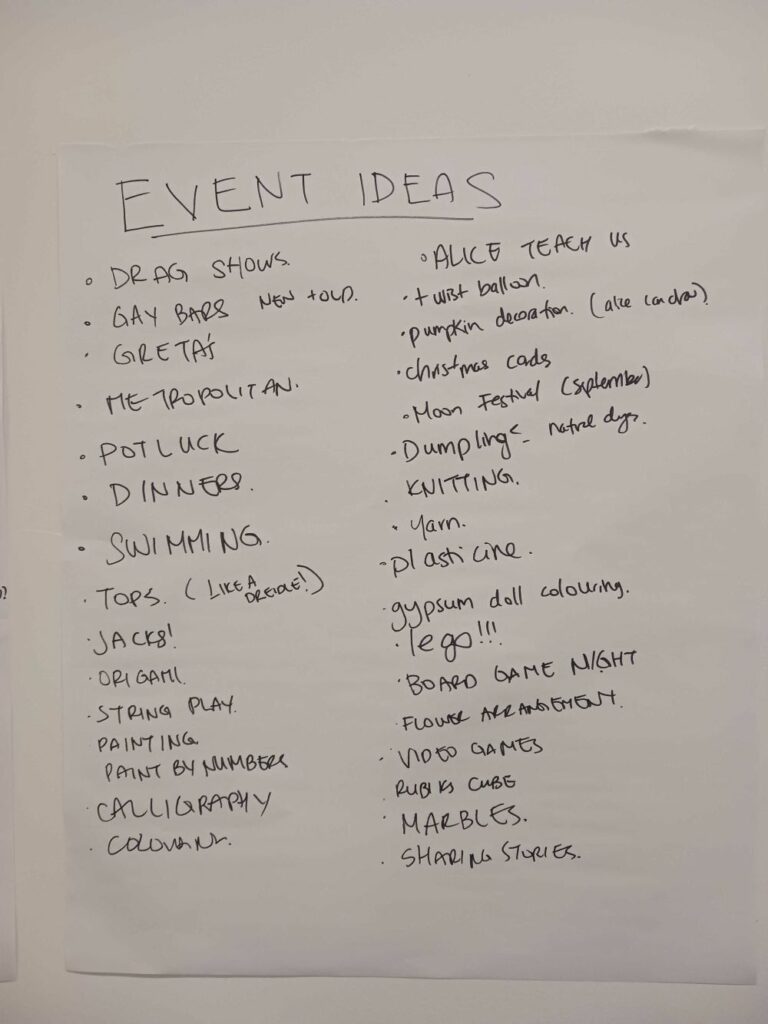 EVENT IDEAS
• DRAG SHOWS.
• GAY BARS NEW + OLD.
• GRETA'S
• METROPOLITAN.
• POTLUCK
• DINNERS.
• SWIMMING.
• TOPS. (LIKE A DREIDLE!)
• JACKS!
• ORIGAMI.
• STRING PLAY.
PAINTING
PAINT BY NUMBERS
• CALLIGRAPHY
•
• ALICE TEACH US
• twist balloon.
• pumpkin decoration. (alice
• christmas cards
• Moon Festival (September)
• Dumplings
• KNITTING.
• Yarn.
• plasticine.
• gypsum doll colouring.
• lego!!!
• BOARD GAME NIGHT
• FLOWER ARRANGEMENT.
• VIDEO GAMES
RUBIKS CUBE
• MARBLES.
• SHARING STORIES.
?